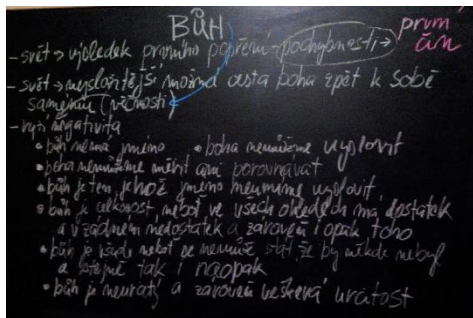 BŮH
první čin
- svět → výsledek prvního popření - pochybnosti →
- svět → nejslavitější možná cesta boha zpět k sobě
samému (věčnosti)
- ryzí negativita
• bůh nemá jméno • boha nemůžeme vyslovit
• boha nemůžeme měřit ani porovnávat
• bůh je ten, jehož jméno neumíme vyslovit
• bůh je celkovost, neboť ve všech ohledech má dostatek
a v žádném nedostatek a zároveň i opak toho
• bůh je všude neboť se nemůže stát, že by někde nebyl
a stejně tak i naopak
• bůh je neuratý a zároveň veškerá uratost